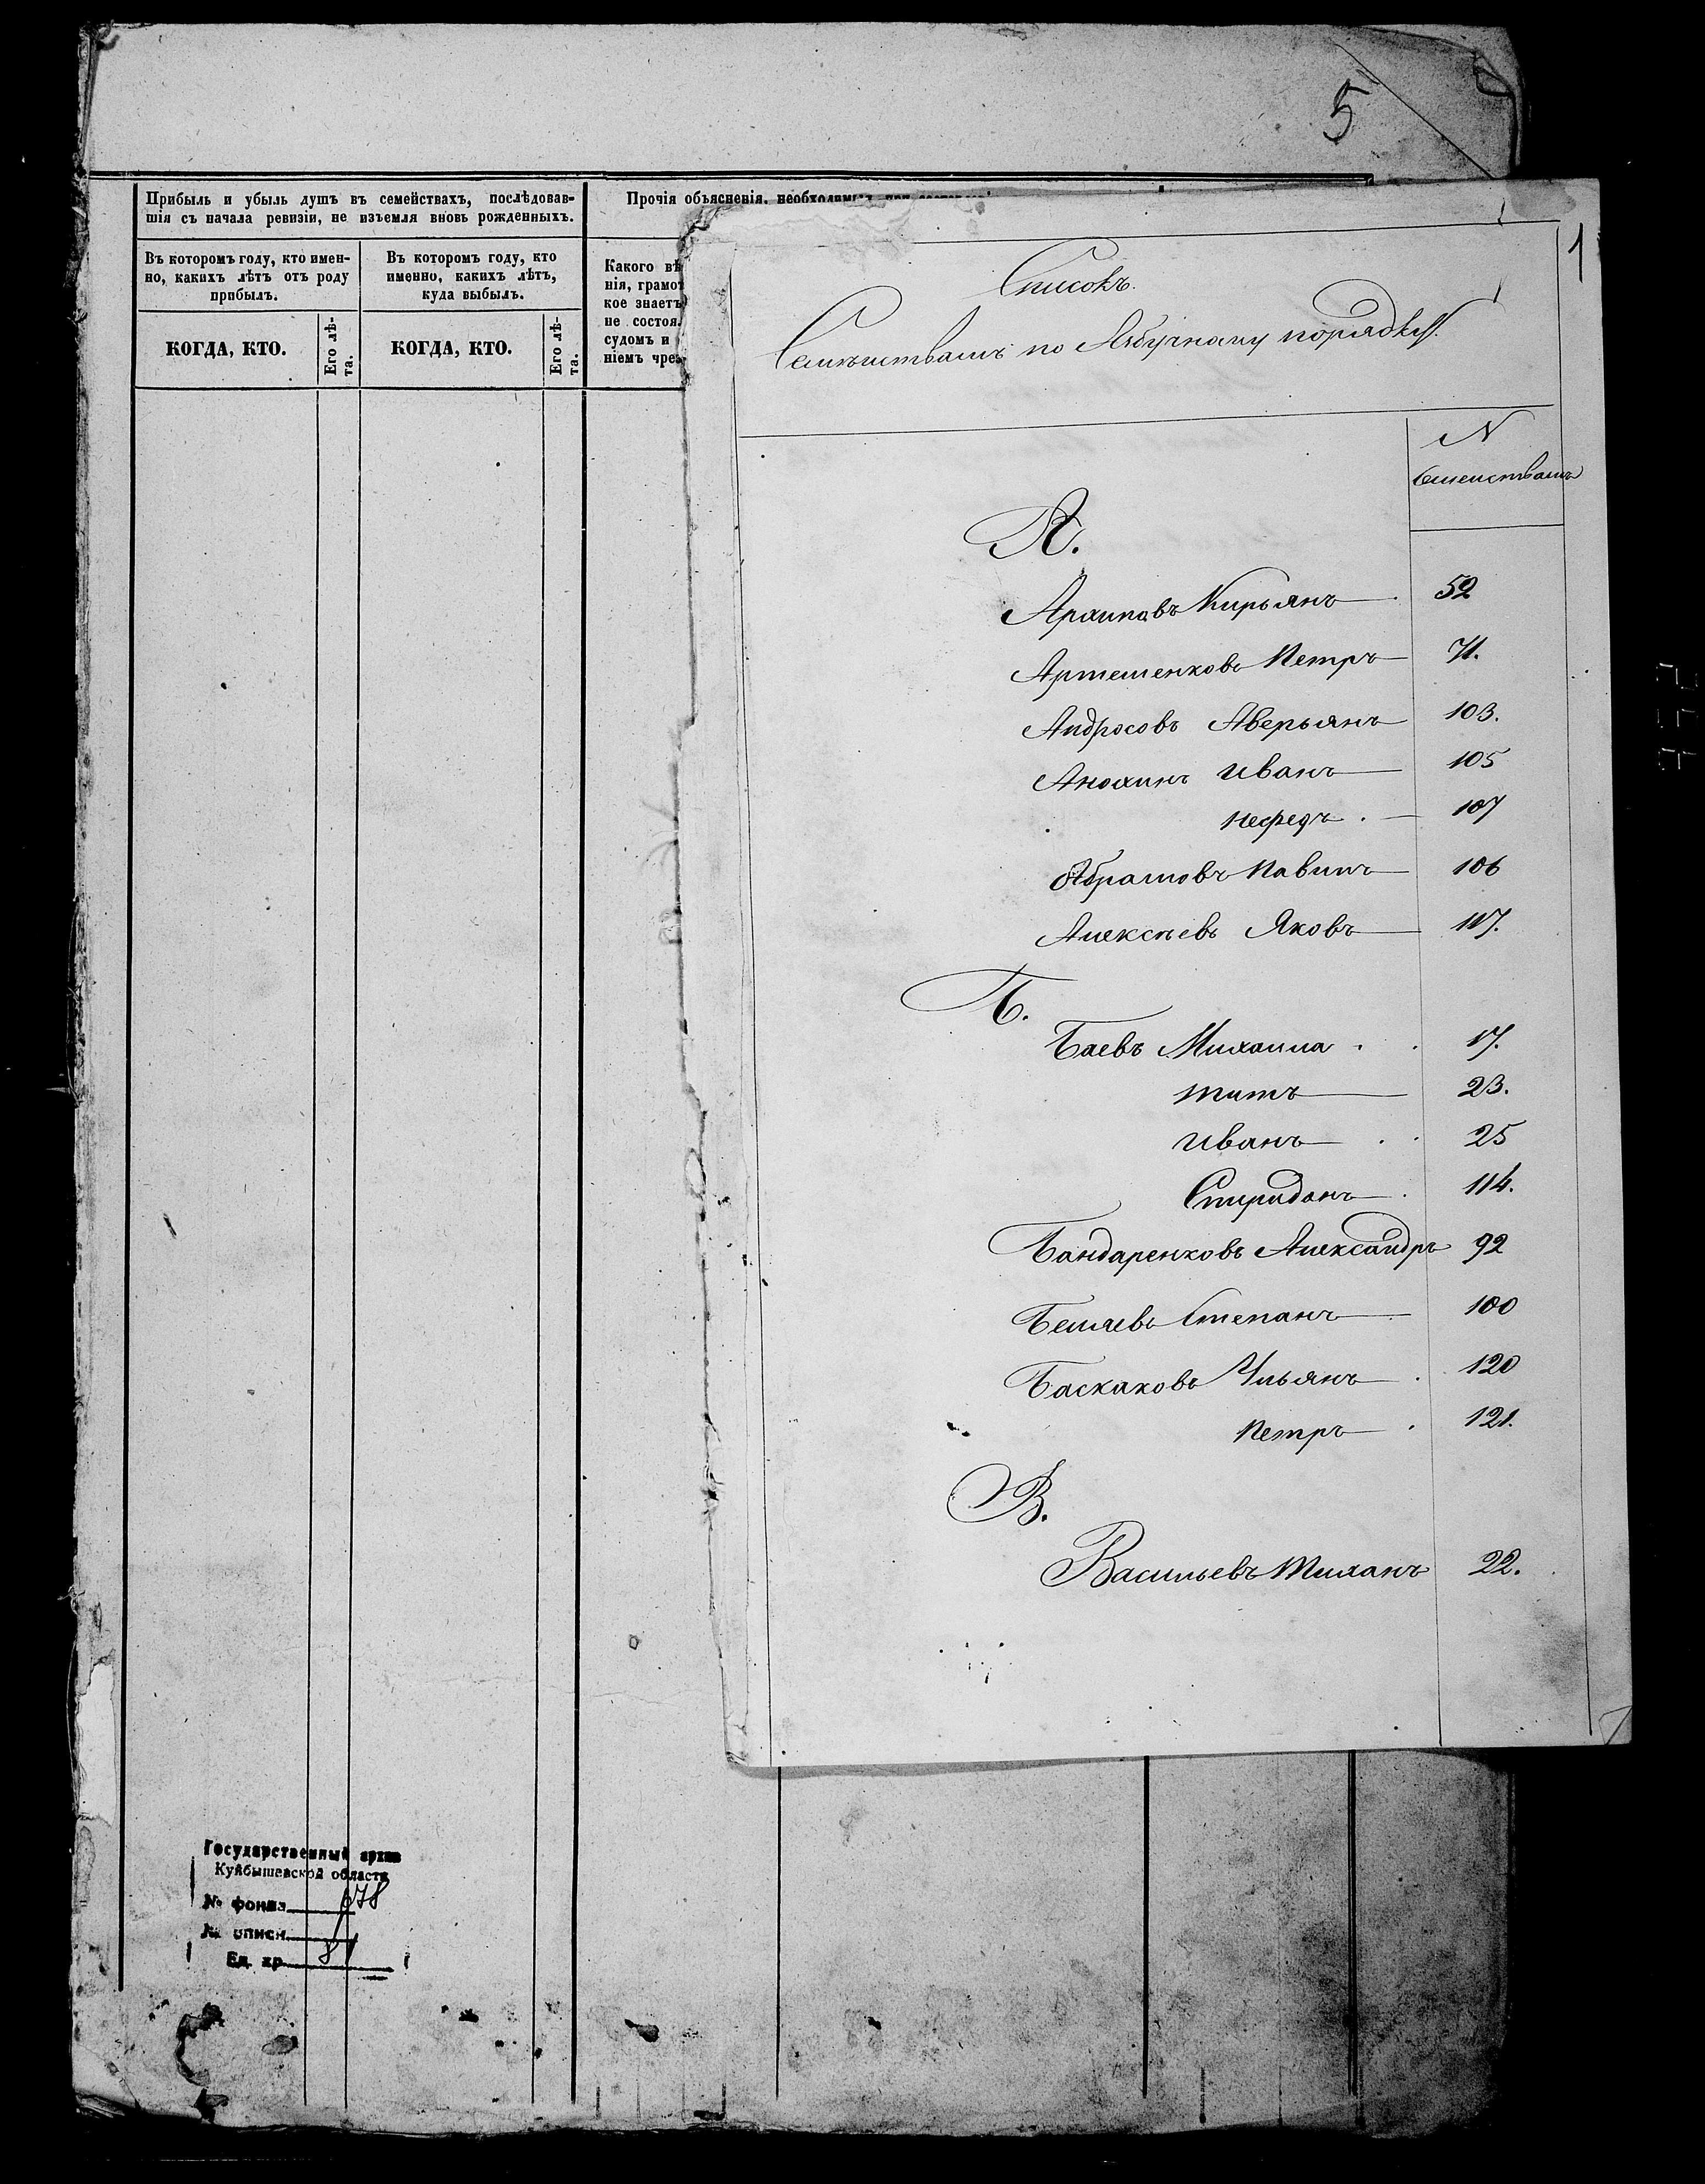 5
Прибыль и убыль душъ въ семействахъ, послѣдовав-
шія съ начала ревизіи, не изъемля вновь рожденныхъ.
Прочія объясненія, необходимыя при
Въ которомъ году, кто имен-
но, какихъ лѣтъ отъ роду
прибылъ.
Въ которомъ году, кто
именно, какихъ лѣтъ,
куда выбылъ.
КОГДА, КТО.
Его лѣ-
та.
КОГДА, КТО.
Его лѣ-
та.
Какого вѣ
нія, грамот
кое знаетъ
не состоя
судомъ и
ніемъ чрез
1
Списокъ.
Семѣиствамъ по Азбучному порядку.
N
Семеиствамъ
А.
Архиповъ Кирьянъ 52
Артеменковъ Петръ 71.
Андросовъ Аверьянъ 103.
Анохинъ Иванъ 105
Нефедъ 107
Абрамовъ Павилъ 106
Алексѣевъ Яковъ 117.
Б.
Баевъ Михаила 17.
Титъ 23.
Иванъ 25
Спиридонъ 114.
Бандаренковъ Александръ 92
Беляевъ Степанъ 100
Баскаковъ Ульянъ 120
Петръ 121.
В.
Васильевъ Тиханъ 22.
Государственный архив
Куйбышевской области
№ фонда 678
№ описи
Ед. хр. 81